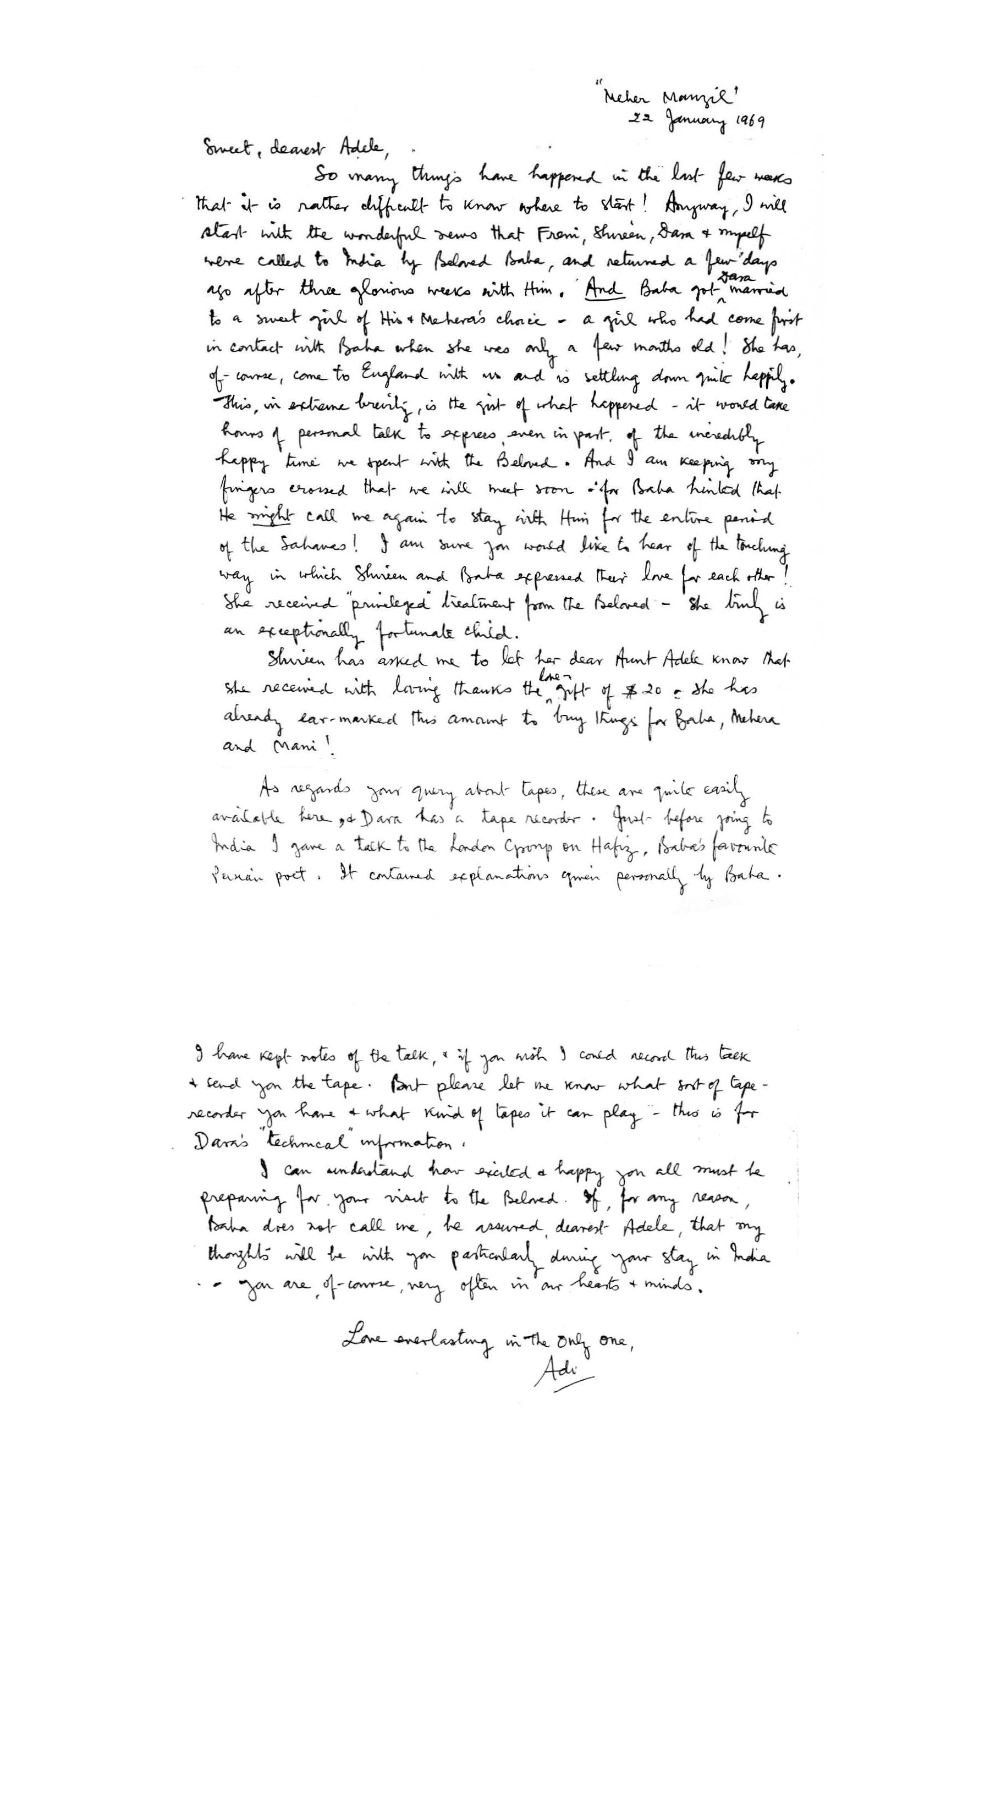 "Meher Manzil"
22 January 1969
Sweet, dearest Adele,
So many things have happened in the last few weeks
that it is rather difficult to know where to start! Anyway, I will
start with the wonderful news that Freni, Shireen, Dara & myself
were called to India by Beloved Baba, and returned a few days
ago after three glorious weeks with Him. And Baba got Dara married
to a sweet girl of His & Mehera's choice - a girl who had come first
in contact with Baba when she was only a few months old! She has,
of-course, come to England with us and is settling down quite happily.
This, in extreme brevity, is the gist of what happened - it would take
hours of personal talk to express, even in part, of the incredibly
happy time we spent with the Beloved. And I am keeping my
fingers crossed that we will meet soon - for Baba hinted that
He might call me again to stay with Him for the entire period
of the Sahavas! I am sure you would like to hear of the touching
way in which Shireen and Baba expressed their love for each other!
She received "privileged" treatment from the Beloved - she truly is
an exceptionally fortunate child.
Shireen has asked me to let her dear Aunt Adele know that
she received with loving thanks the love-gift of $20 - She has
already ear-marked this amount to buy things for Baba, Mehera
and Mani!
As regards your query about tapes, these are quite easily
available here, & Dara has a tape recorder. Just before going to
India I gave a talk to the London Group on Hafiz, Baba's favourite
Persian poet. It contained explanations given personally by Baba.
I have kept notes of the talk, & if you wish I could record this talk
& send you the tape. But please let me know what sort of tape-
recorder you have & what kind of tapes it can play - this is for
Dara's "technical" information.
I can understand how excited & happy you all must be
preparing for your visit to the Beloved. If, for any reason,
Baba does not call me, be assured, dearest Adele, that my
thoughts will be with you particularly during your stay in India
- you are, of-course, very often in our hearts & minds.
Love everlasting in the only one,
Adi